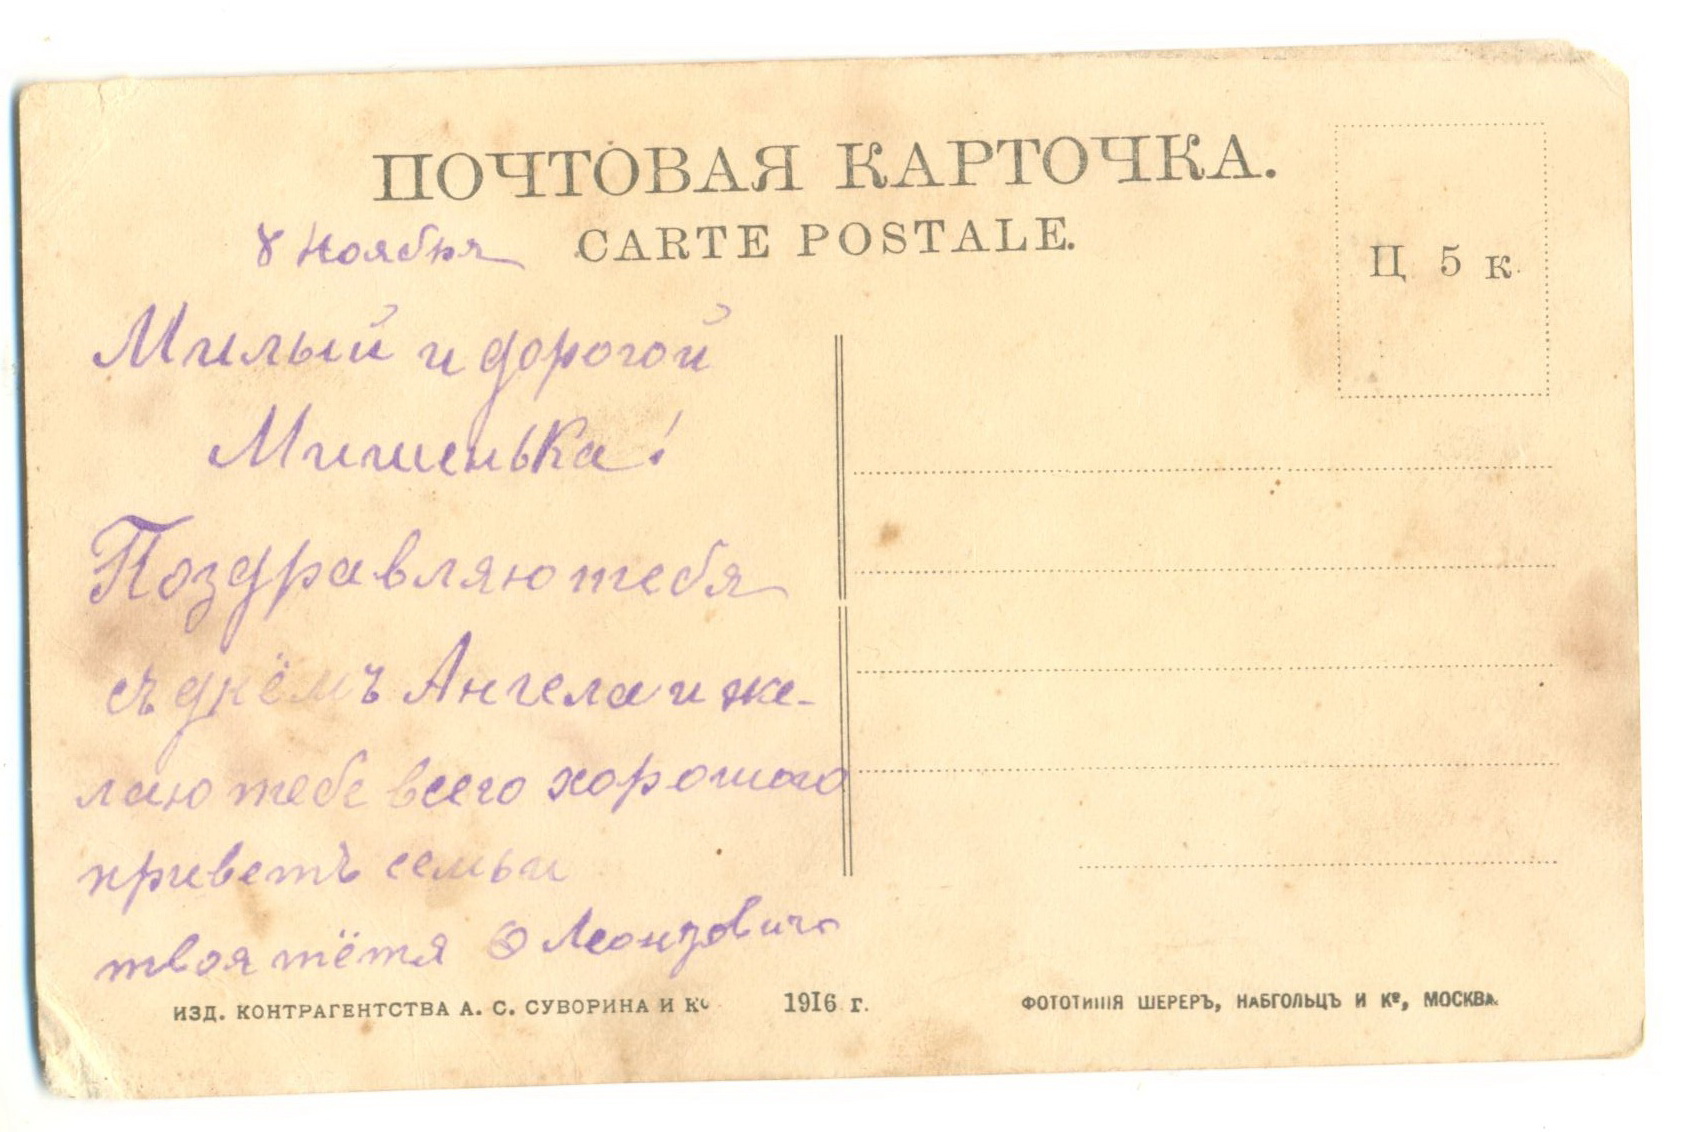 ПОЧТОВАЯ КАРТОЧКА.
CARTE POSTALE.
Ц 5 к.
8 Ноября
Милый и дорогой
Мишенька!
Поздравляю тебя
съ днёмъ Ангела и же-
лаю тебе всего хорошого
приветъ семьи
твоя тётя
ИЗД. КОНТРАГЕНТСТВА А. С. СУВОРИНА И Ко
1916 г.
ФОТОТИПІЯ ШЕРЕРЪ, НАБГОЛЬЦЪ И Ко, МОСКВА.